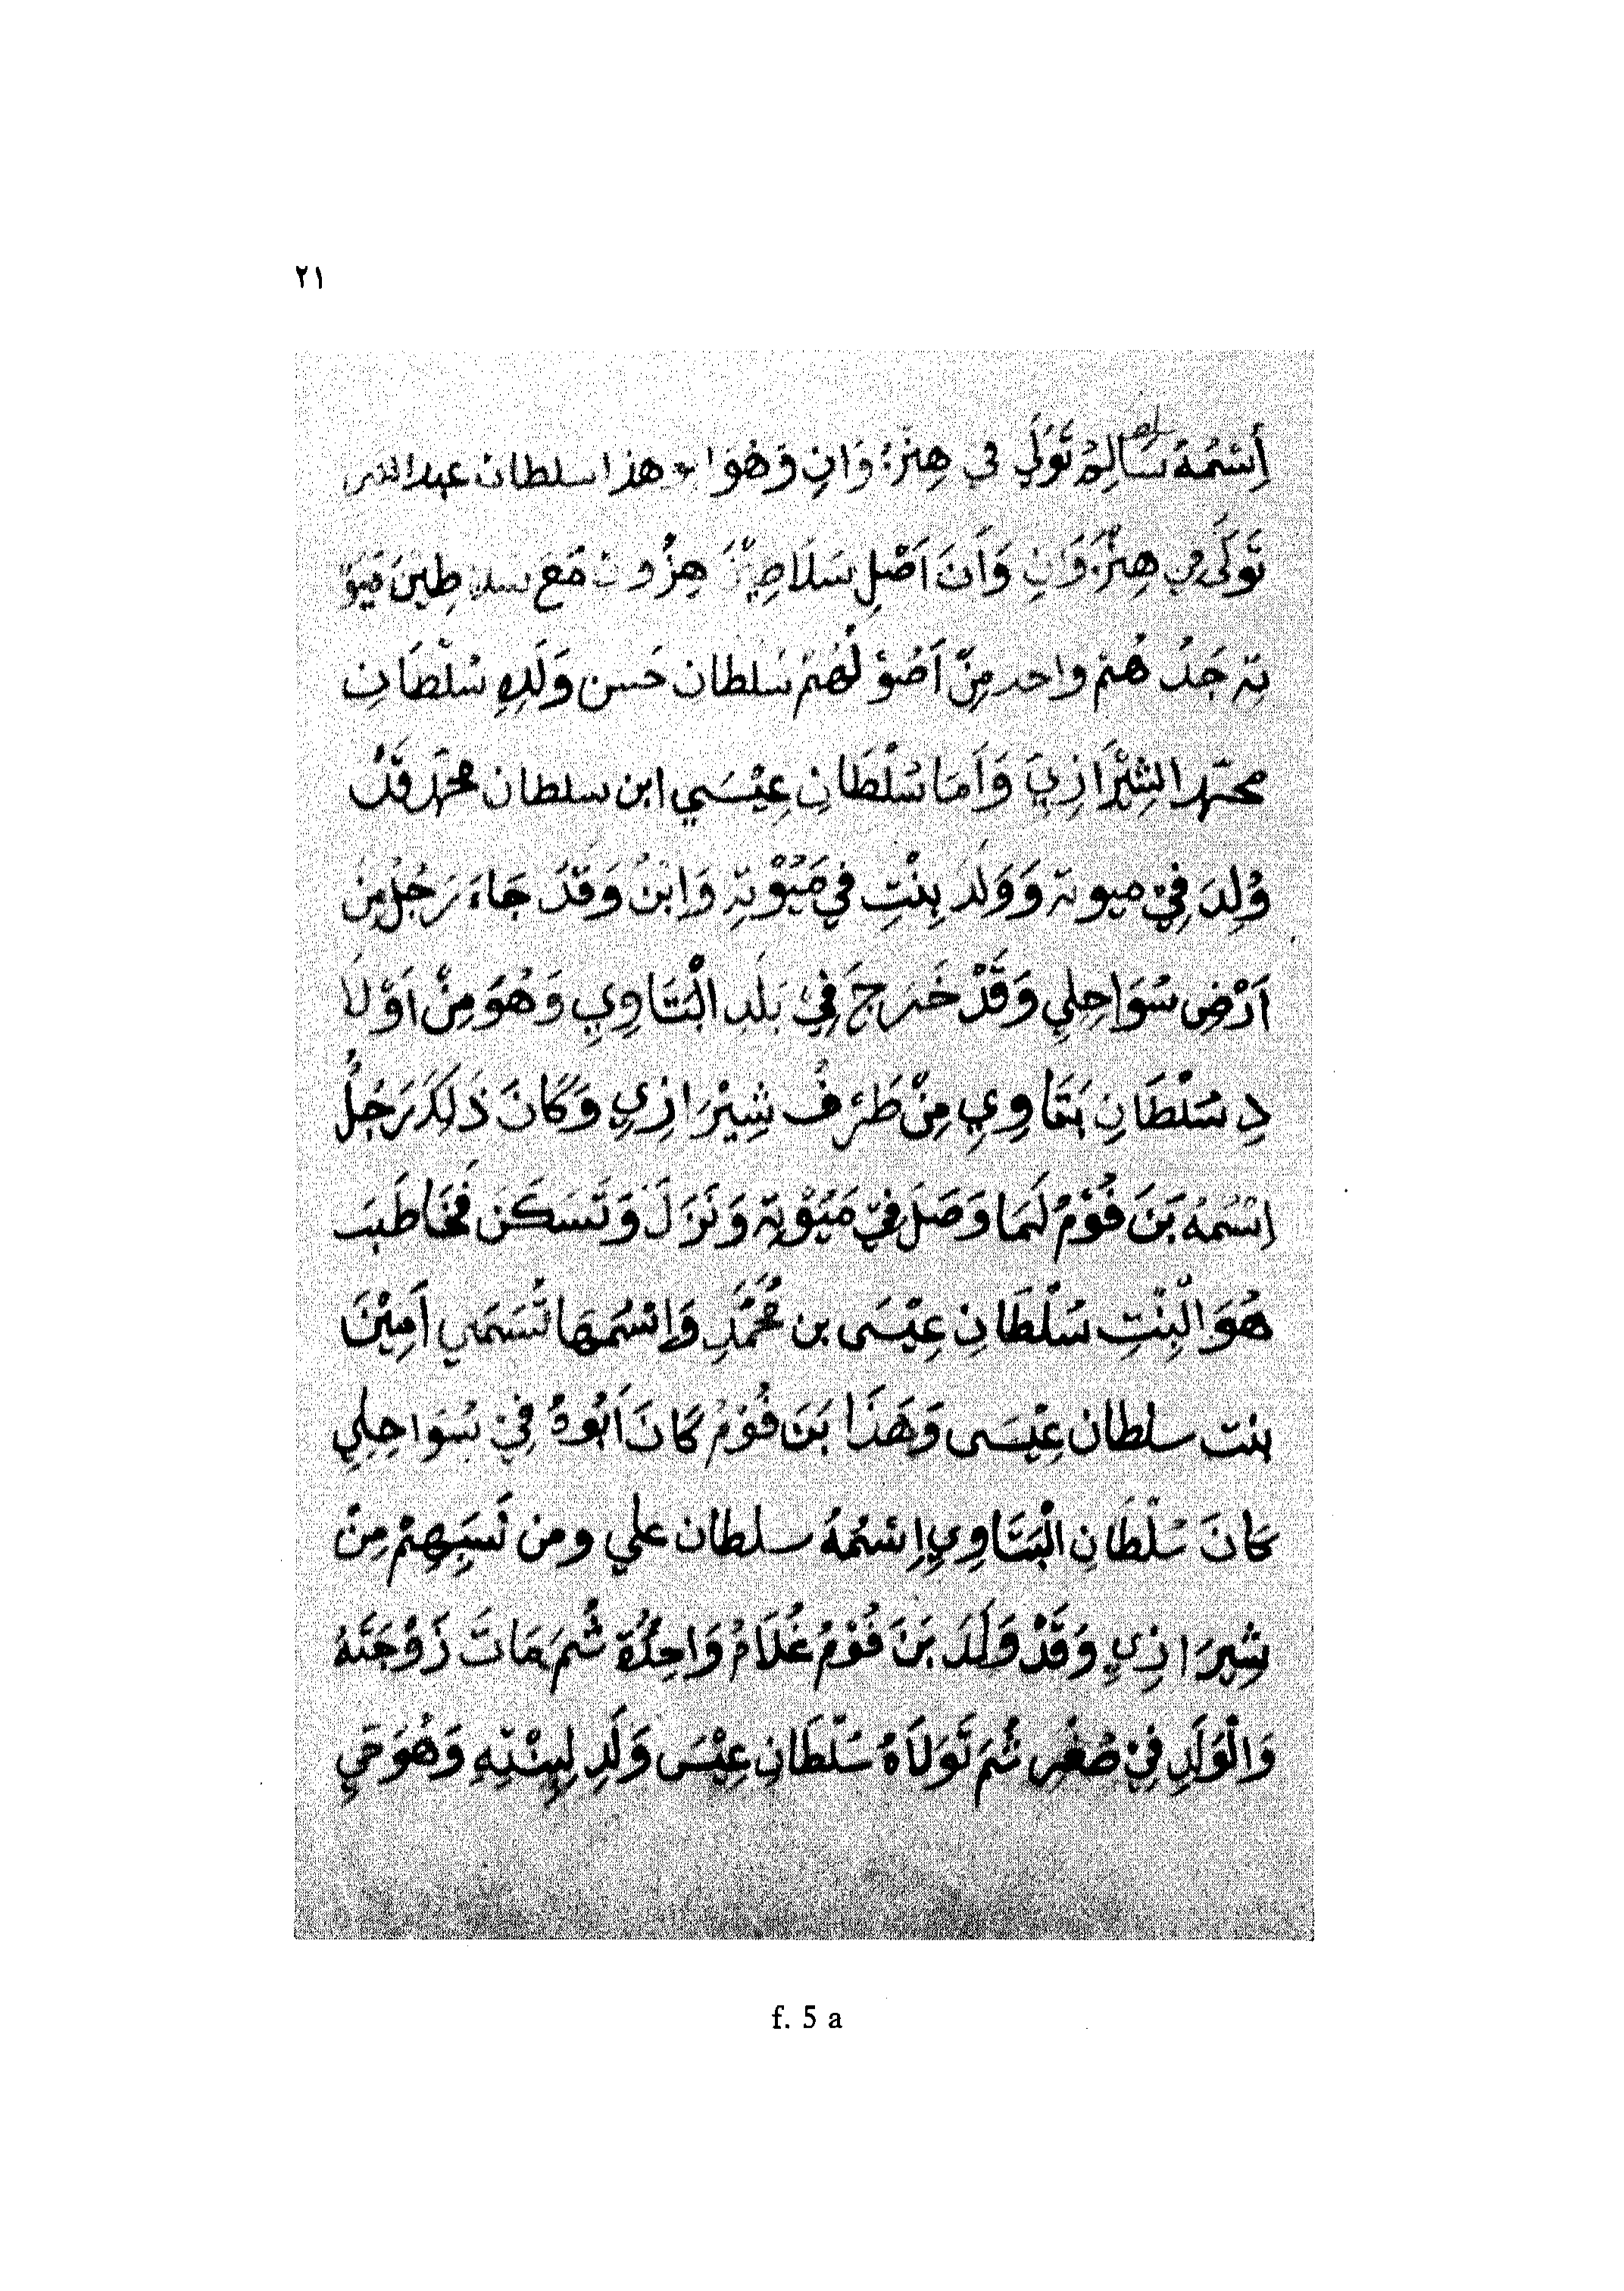 ٢١
إِسْمُهُ سَالِمْ تَوَلَّي في هِنْزُ وَانِ وَهُوَ هذا سلطان عبد الله
تَوَلَّى مِن هِنْزُوَانِ وَأَنَ اَصْلِ سَلَاطِيْنَ هِنْزُوَنْ مَعَ سلاطِينَ مَيُوْ
تِهْ جَدُ هُمْ واحد مِنْ اَصُوْ لُهُمْ سُلطان حَسن وَلَدِهِ سُلْطَانِ
محمّد الشِيْرَازِيَ وَاَمَا سُلْطَانِ عِيْسَي ابن سلطان محمّد قَدْ
وُلِدَ فِيْ ميوتة وَوَلَدَ بِنْتِ فِي مَيُوْتِهِ وَابْنُ وَقَدْ جَاءَ رَجُلْ مِنْ
اَرْضِ سُوَاحِلِي وَقَدْ خَرَجَ فِيْ بَلَدِ الْبَتَاوِيِ وَهُوَ مِنْ اَوْلَا
دِ سُلْطَانِ بَتَاوِيِ مِنْ طَرَفُ شِيْرَازِيِ وَكَانَ ذَلِكَ رَجُلُ
اِسْمُهُ بَنَ فُوْمُ لَمَا وَصَلَ فِيْ مَيُوْتِهْ وَنَزَلَ وَتَسَكَنَ فَخَاطَبَ
هُوَ الْبِنْتِ سُلْطَانِ عِيْسَى بن مُحَمَّدِ وَاِسْمُهَا تُسَمَي اَمِيْنَ
بنت سلطان عِيْسَى وَهَذَا بَنَ فُوْمُ كَانَ اَبُوهُ فِيْ سُوَاحِلِي
كَانَ سُلْطَانِ الْبَتَاوِيِ اِسْمُهُ سلطان علي ومن نَسَبِهِمْ مِنْ
شِيْرَازِيِ وَقَدْ وَلَدَ بَنَ فُوْمُ غُلَامُ وَاحِدُهُ ثُمَ مَاتَ زَوْجَتَهُ
وَالْوَلَدِ فِيْ صُغْرِ ثُمَ تَوَلَاهُ سُلْطَانِ عِيْسَى وَلَدِ لِبِنْتِهِ وَهُوَ حَيِ
f. 5 a